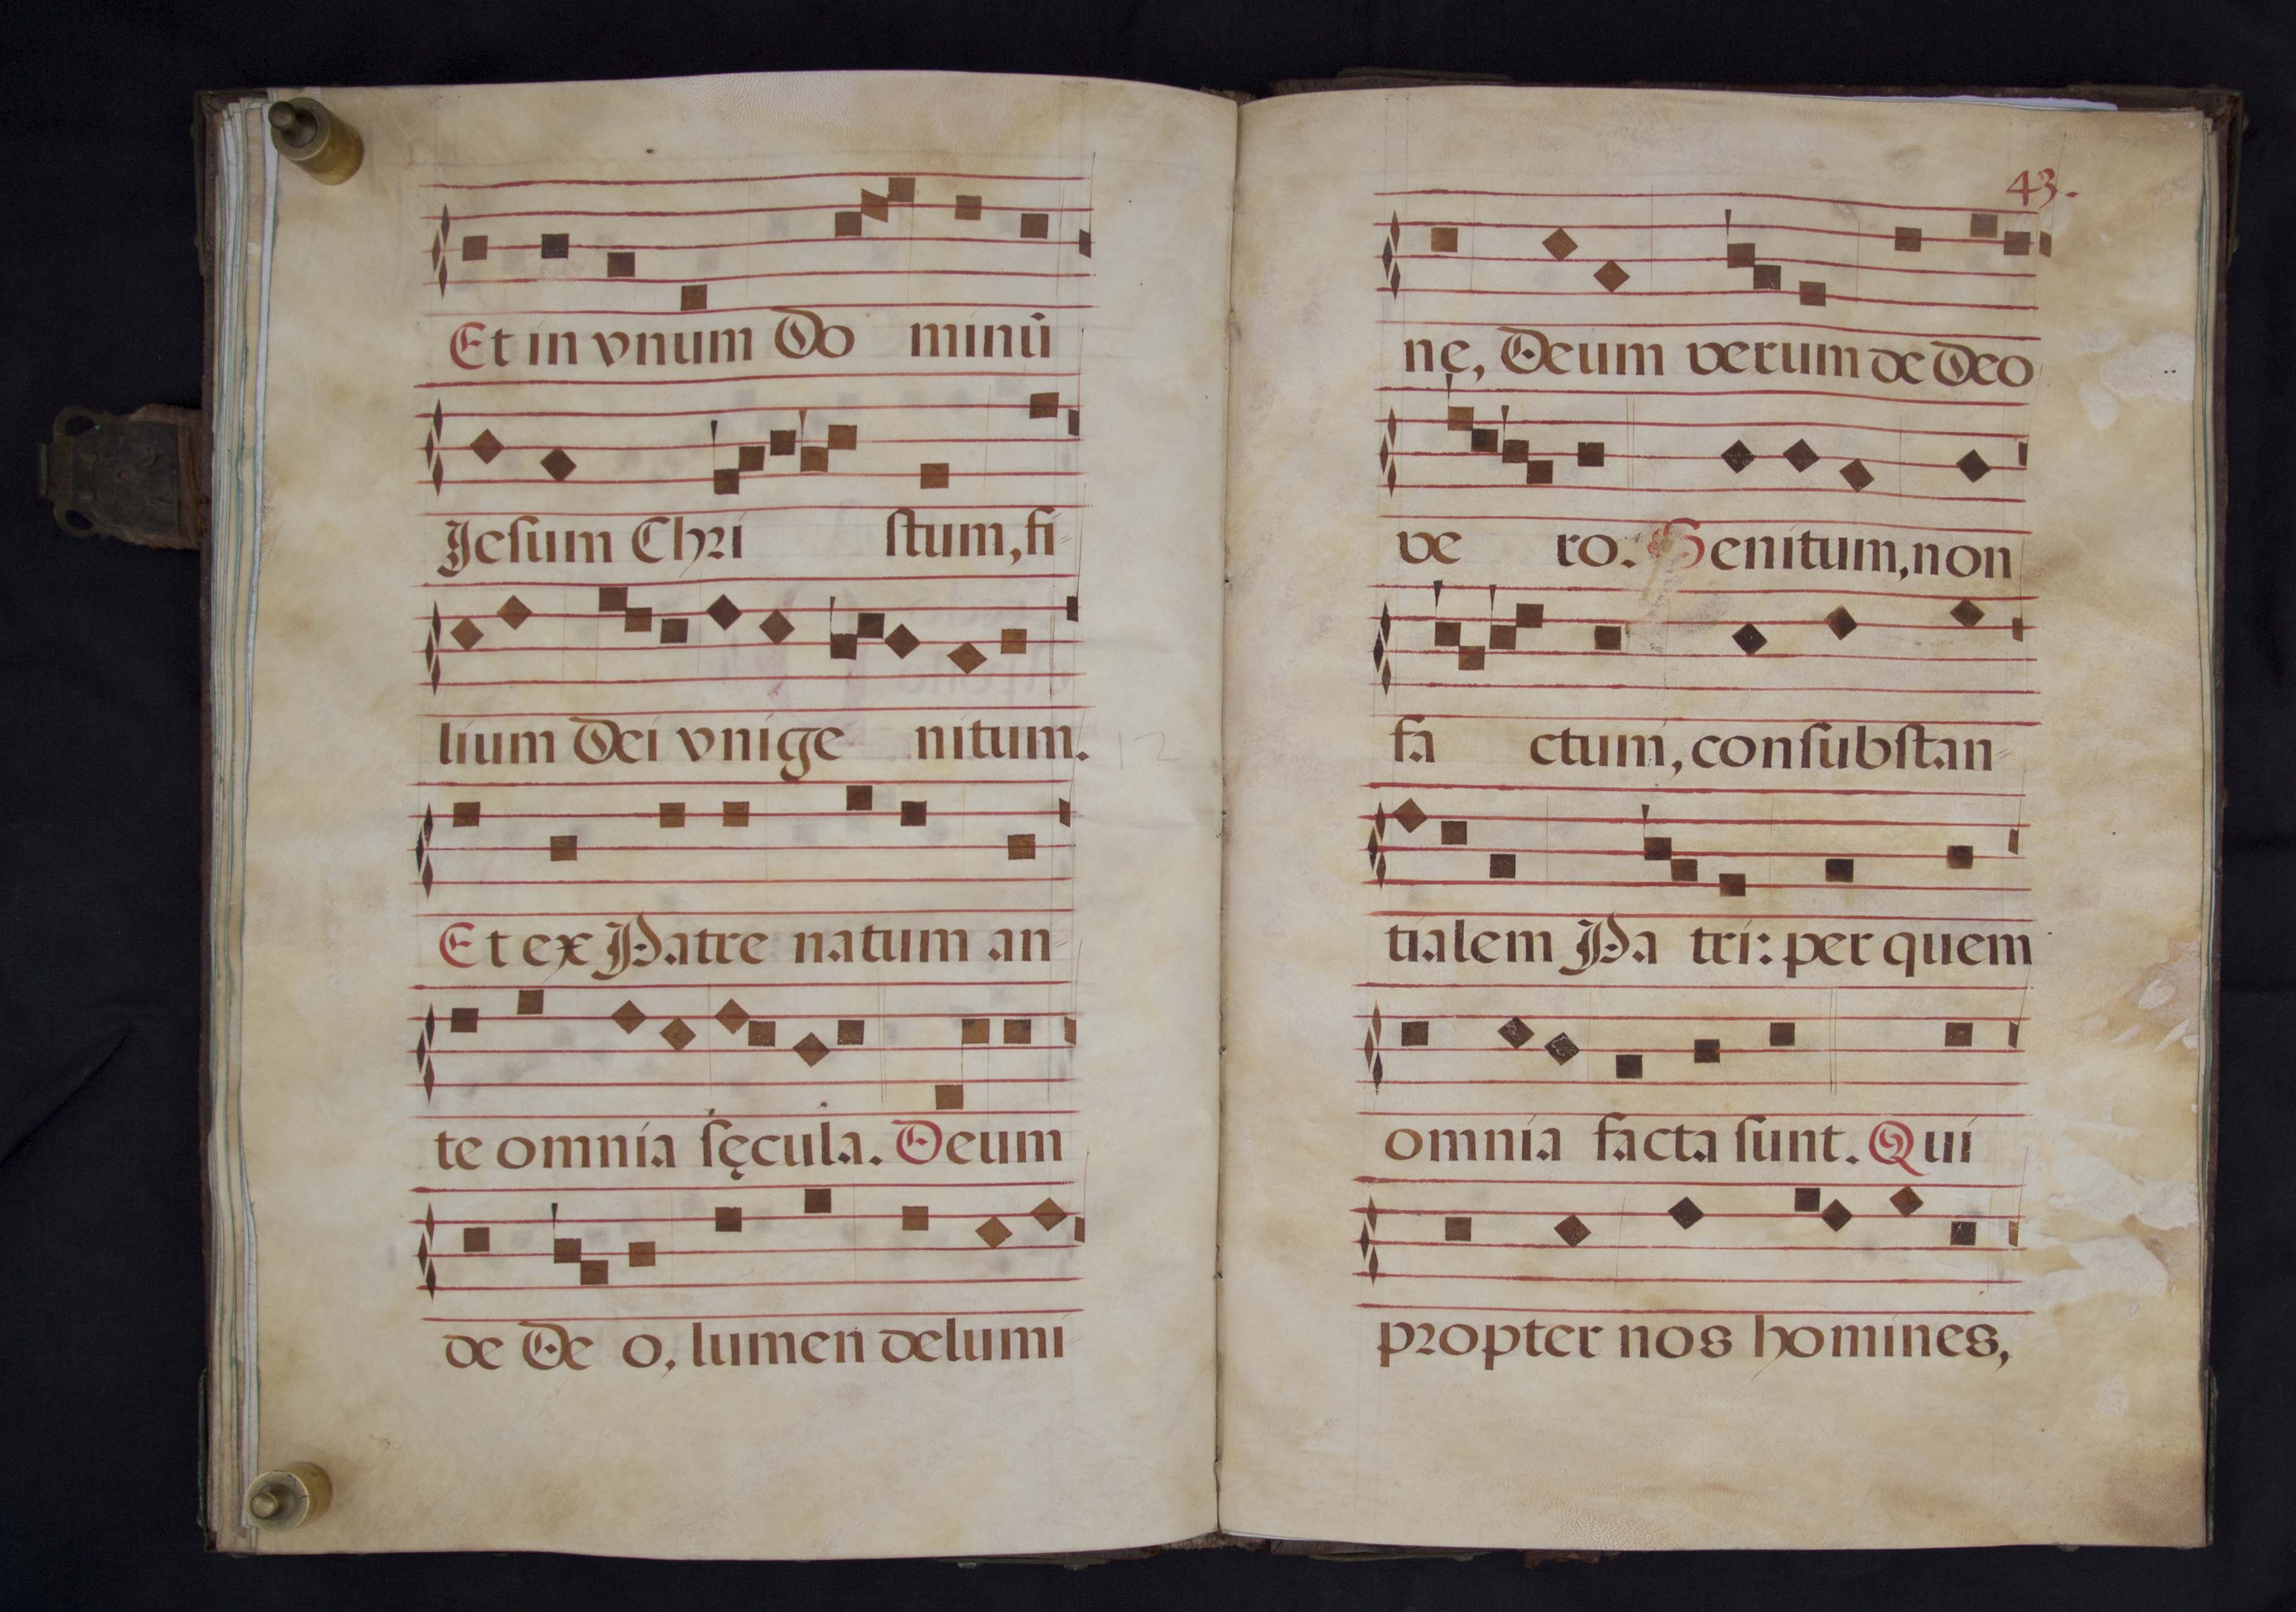 Et in vnum Do minū
Jeſum Chri ſtum, fi-
lium Dei vnige nitum.
Et ex Patre natum an-
te omnia ſęcula. Deum
de De o, lumen de lumi-
43.
nę, Deum verum de Deo
ve ro. Genitum, non
fa ctum, conſubſtan-
tialem Pa tri: per quem
omnia facta ſunt. Qui
propter nos homines,